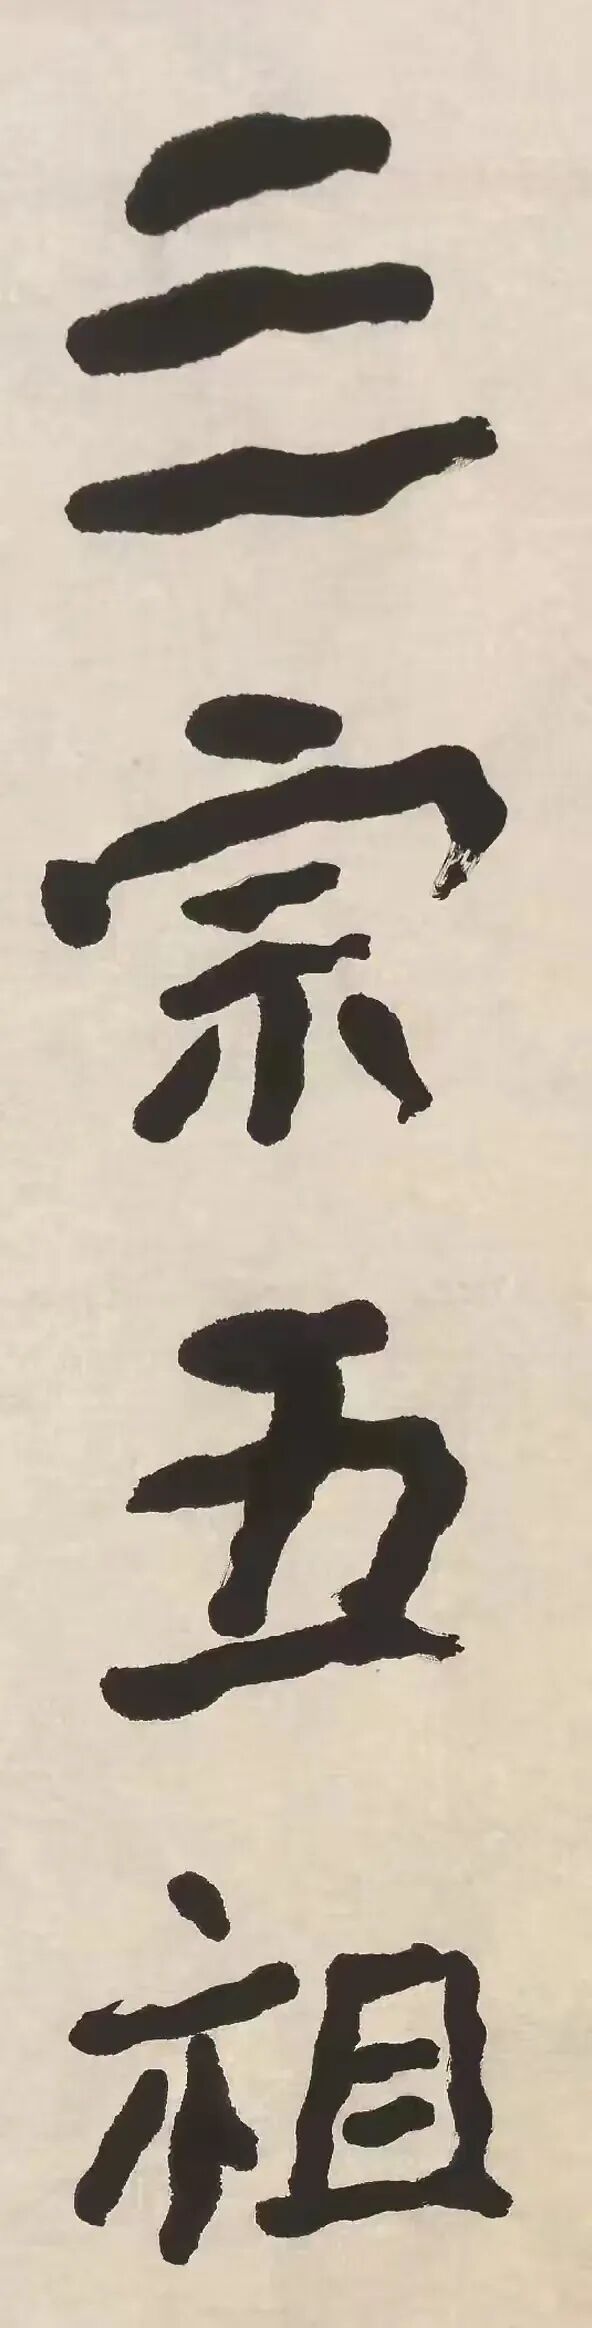 三宗五祖